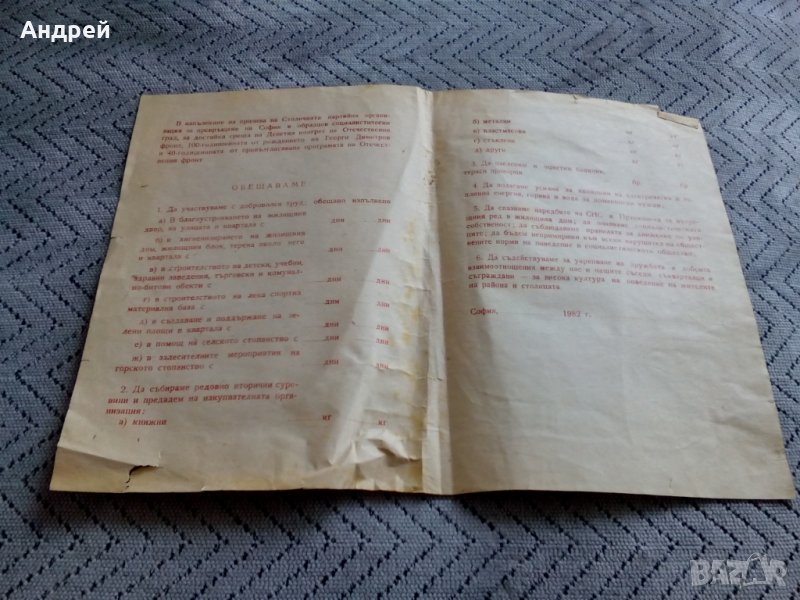 Андрей
В изпълнение на призива на Столичната партийна органи-
зация за превръщане на София в образцов социалистически
град, за достойна среща на Деветия конгрес на Отечествения
фронт, 100-годишнината от рождението на Георги Димитров
и 40-годишнината от провъзгласяване програмата на Отечест-
вения фронт
ОБЕЩАВАМЕ:
1. Да участвуваме с доброволен труд: обещано изпълнено
а) В благоустрояването на жилищния
двор, на улицата и квартала с дни дни
б) в хигиенизирането на жилищния
дом, жилищния блок, терена около него
и квартала с дни дни
в) в строителството на детски, учебни,
здравни заведения, търговски и комунал-
но-битови обекти с дни дни
г) в строителството на лека спортна
материална база с дни дни
д) в създаване и поддържане на зе-
лени площи в квартала с дни дни
е) в помощ на селското стопанство с дни дни
ж) в залесителните мероприятия на
горското стопанство с дни дни
2. Да събираме редовно вторични суро-
вини и предадем на изкупвателната орга-
низация:
а) книжни кг кг
б) метални
в) пластмасови кг кг
г) стъклени кг кг
д) други кг кг
3. Да озеленим и цветни балкони,
тераси прозорци бр. бр.
4. Да полагаме усилия за икономия на електрическа и то-
плинна енергия, горива и вода за домакински нужди.
5. Да спазваме наредбите на СНС и Правилника за вътреш-
ния ред в жилищната
собственост; да съблюдаваме правилата за
ците; да бъдем непримирими към всеки нарушител на общест-
вените норми на поведение в социалистическото общество.
6. Да съдействуваме за укрепване на дружбата и добрите
взаимоотношения между нас и нашите съседи, съквартиранци и
съграждани — за висока култура на поведение на жителите
на района и столицата.
София, 1982 г.
BAZAR